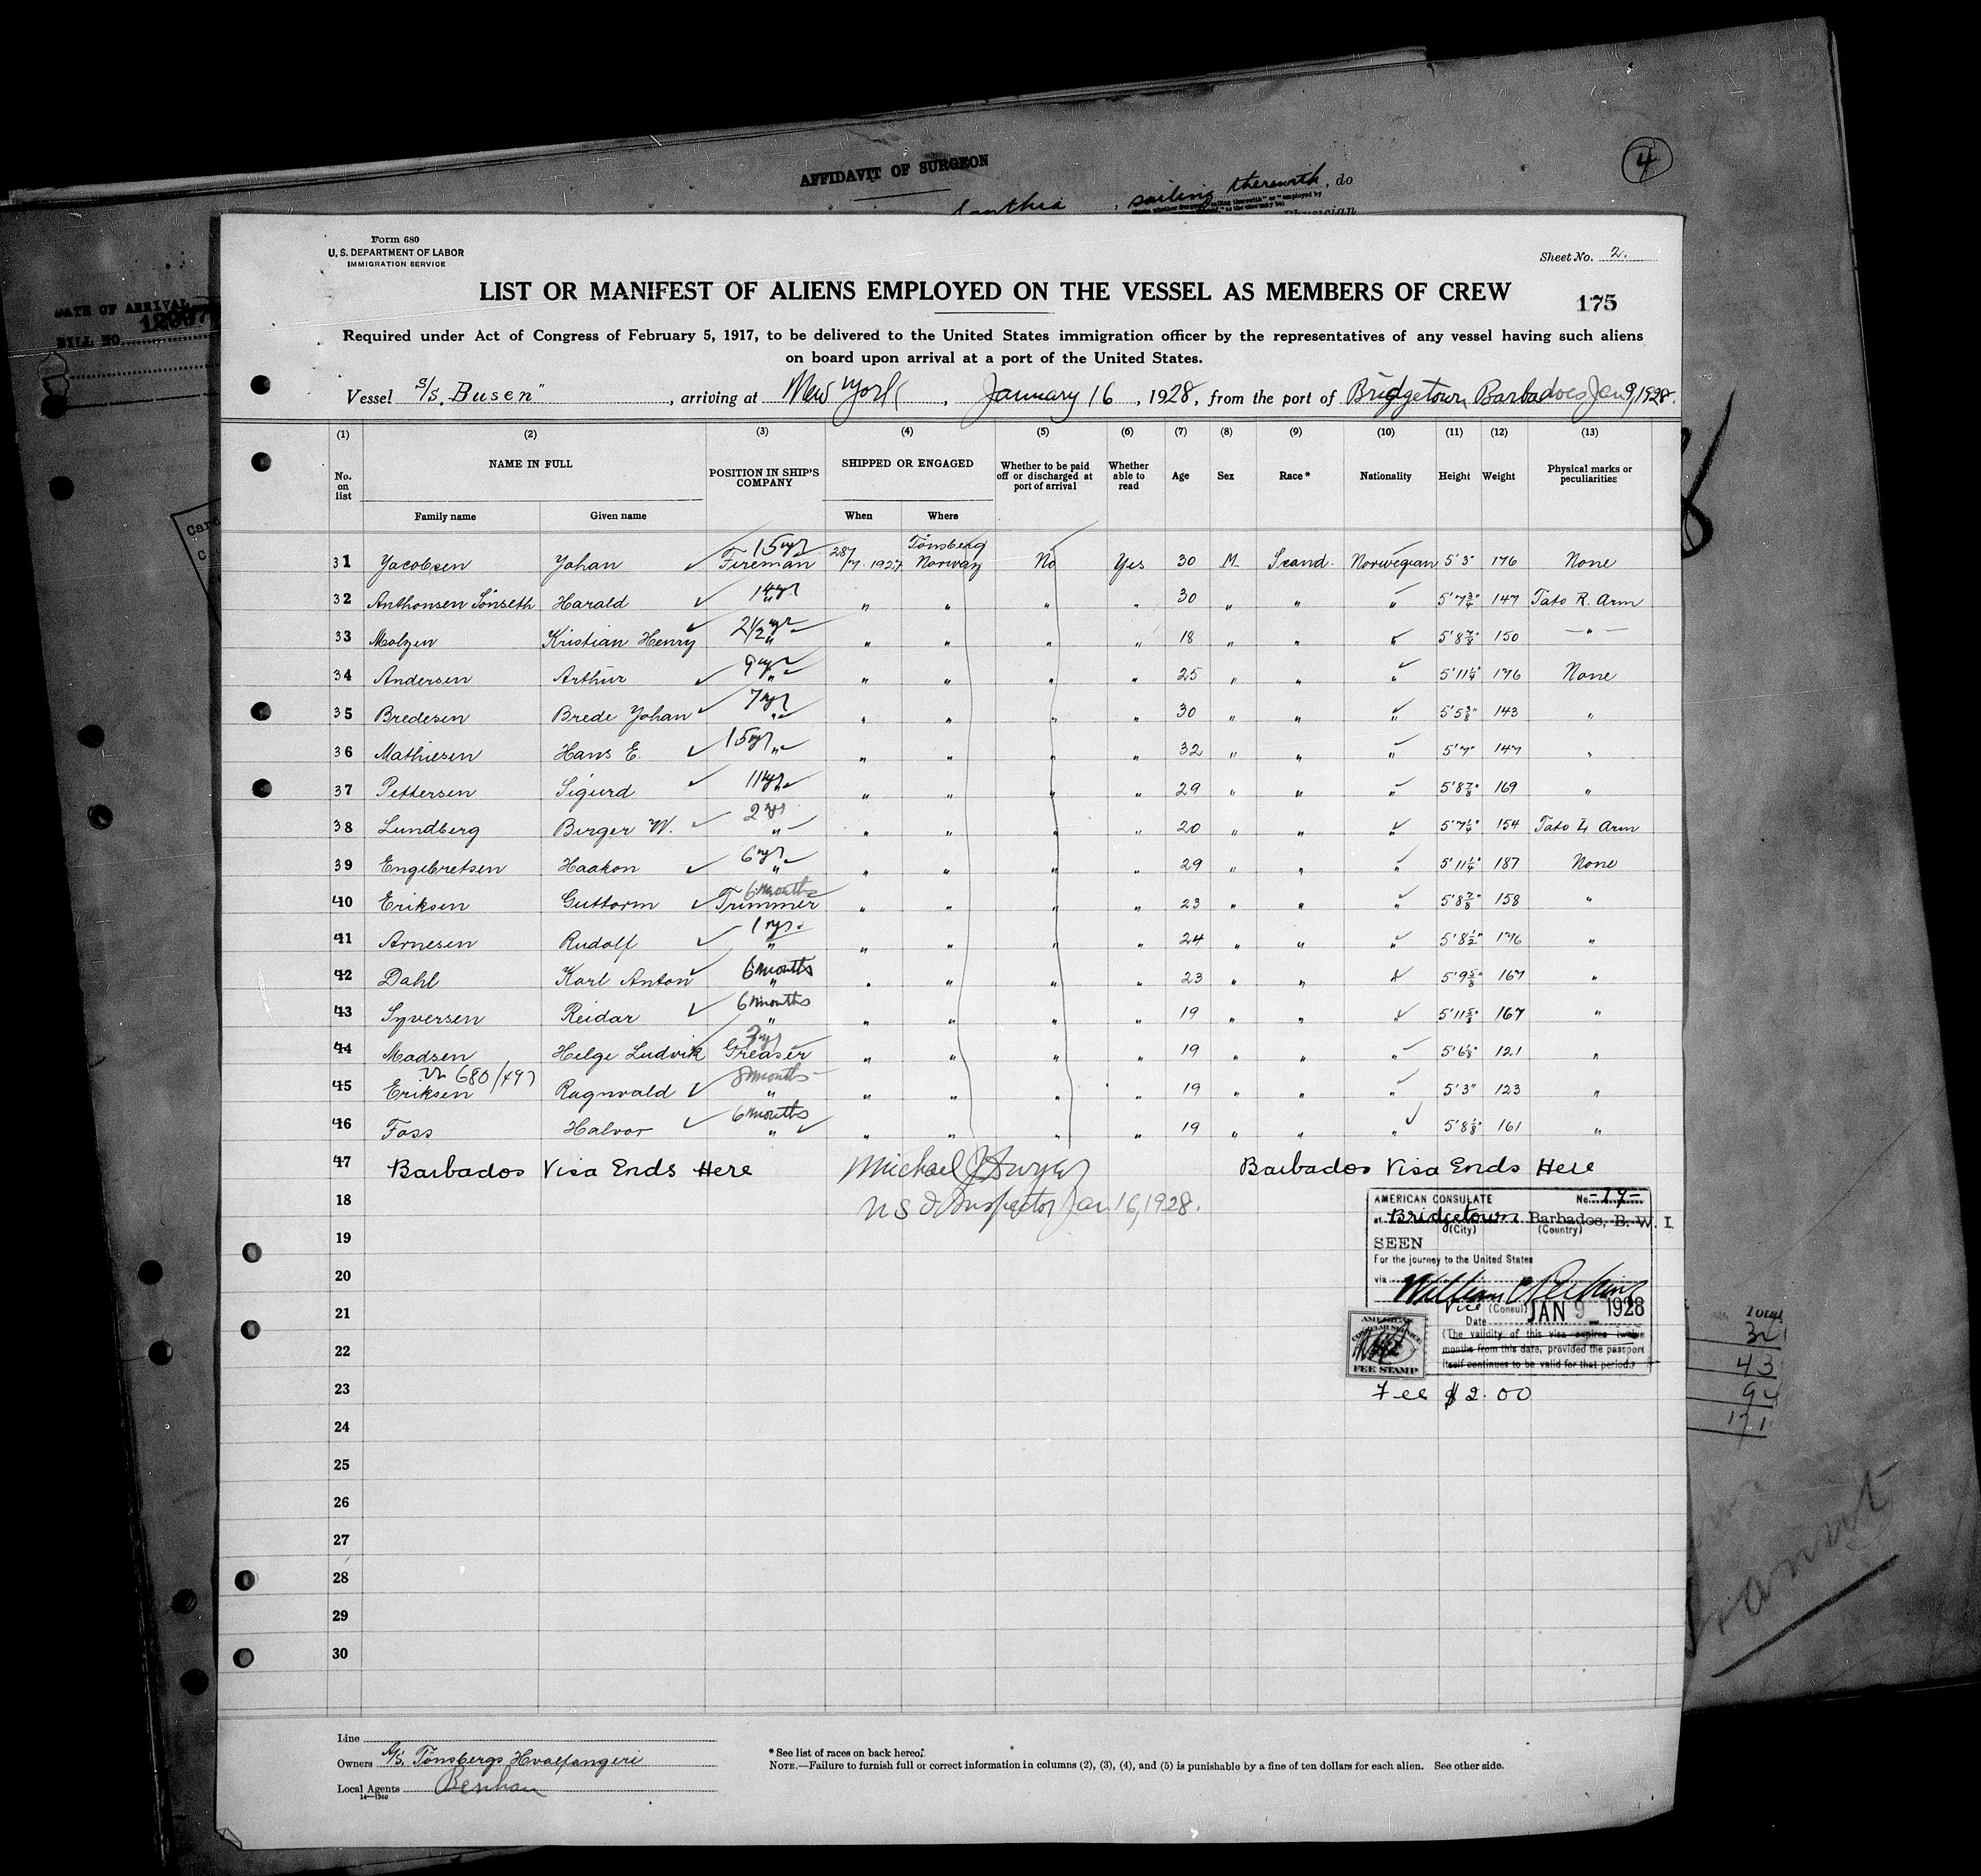 AFFIDAVIT OF SURGEON
4
sailing therewith, do
DATE OF ARRIVAL
BILL NO.
Form 680
U. S. DEPARTMENT OF LABOR
IMMIGRATION SERVICE
Sheet No. 2.
LIST OR MANIFEST OF ALIENS EMPLOYED ON THE VESSEL AS MEMBERS OF CREW
175
Required under Act of Congress of February 5, 1917, to be delivered to the United States immigration officer by the representatives of any vessel having such aliens
on board upon arrival at a port of the United States.
Vessel S/S. Busen", arriving at New York, January 16, 1928, from the port of Bridgetown Barbados Jan 9, 1928.
(1) (2) (3) (4) (5) (6) (7) (8) (9) (10) (11) (12) (13)
No. on list NAME IN FULL POSITION IN SHIP'S COMPANY SHIPPED OR ENGAGED Whether to be paid off or discharged at port of arrival Whether able to read Age Sex Race* Nationality Height Weight Physical marks or peculiarities
Family name Given name When Where
31 Yacobsen Yohan 15 yrs Fireman 28/7. 1927 Tönsberg Norway No Yes 30 M Scand. Norwegian 5'3" 176 None
32 Anthonsen Sönseth Harald 14 yrs " " " " " 30 " " " 5'7¾" 147 Tato R. Arm
33 Molzen Kristian Henry 2½ yr " " " " " 18 " " " 5'8⅞" 150 — " —
34 Andersen Arthur 9 yr " " " " " 25 " " " 5'11¼" 176 None
35 Bredesen Brede Yohan 7 yr " " " " " 30 " " " 5'5⅜" 143 "
36 Mathiesen Hans E. 15 yr " " " " " 32 " " " 5'7" 147 "
37 Pettersen Sigurd 11 yr " " " " " 29 " " " 5'8⅞" 169 "
38 Lundberg Birger W. 2 yrs " " " " " 20 " " " 5'7¼" 154 Tato L Arm
39 Engebretsen Haakon 6 yr " " " " " 29 " " " 5'11¼" 187 None
40 Eriksen Guttorm 6 months Trimmer " " " " 23 " " " 5'8⅞" 158 "
41 Arnesen Rudolf 1 yr. " " " " " 24 " " " 5'8½" 176 "
42 Dahl Karl Anton 6 months " " " " " 23 " " " 5'9⅝" 167 "
43 Syversen Reidar 6 months " " " " " 19 " " " 5'11⅝" 167 "
44 Madsen Helge Ludvik yr Greaser " " " " 19 " " " 5'6⅛" 121 "
680/497
45 Eriksen Ragnvald 8 months " " " " " 19 " " " 5'3" 123 "
46 Foss Halvor 6 months " " " " " 19 " " " 5'8⅛" 161 "
47 Barbados Visa Ends Here Michael J Dwyer Barbados Visa Ends Here
18 U S I Inspector Jan 16, 1928.
19
20
21
22
23
24
25
26
27
28
29
30
AMERICAN CONSULATE No. -19-
at Bridgetown Barbados, B. W. I.
(City) (Country)
SEEN
For the journey to the United States
via
William
Vice (Consul)
Date JAN 9 1928
(The validity of this visa expires twelve
months from this date, provided the passport
itself continues to be valid for that period.)
AMERICAN
CONSULAR SERVICE
FEE STAMP
Fee $2.00
Total
43
Line
Owners A/S. Tönsbergs Hvalfangeri
Local Agents
14—1240
* See list of races on back hereof.
NOTE.—Failure to furnish full or correct information in columns (2), (3), (4), and (5) is punishable by a fine of ten dollars for each alien. See other side.